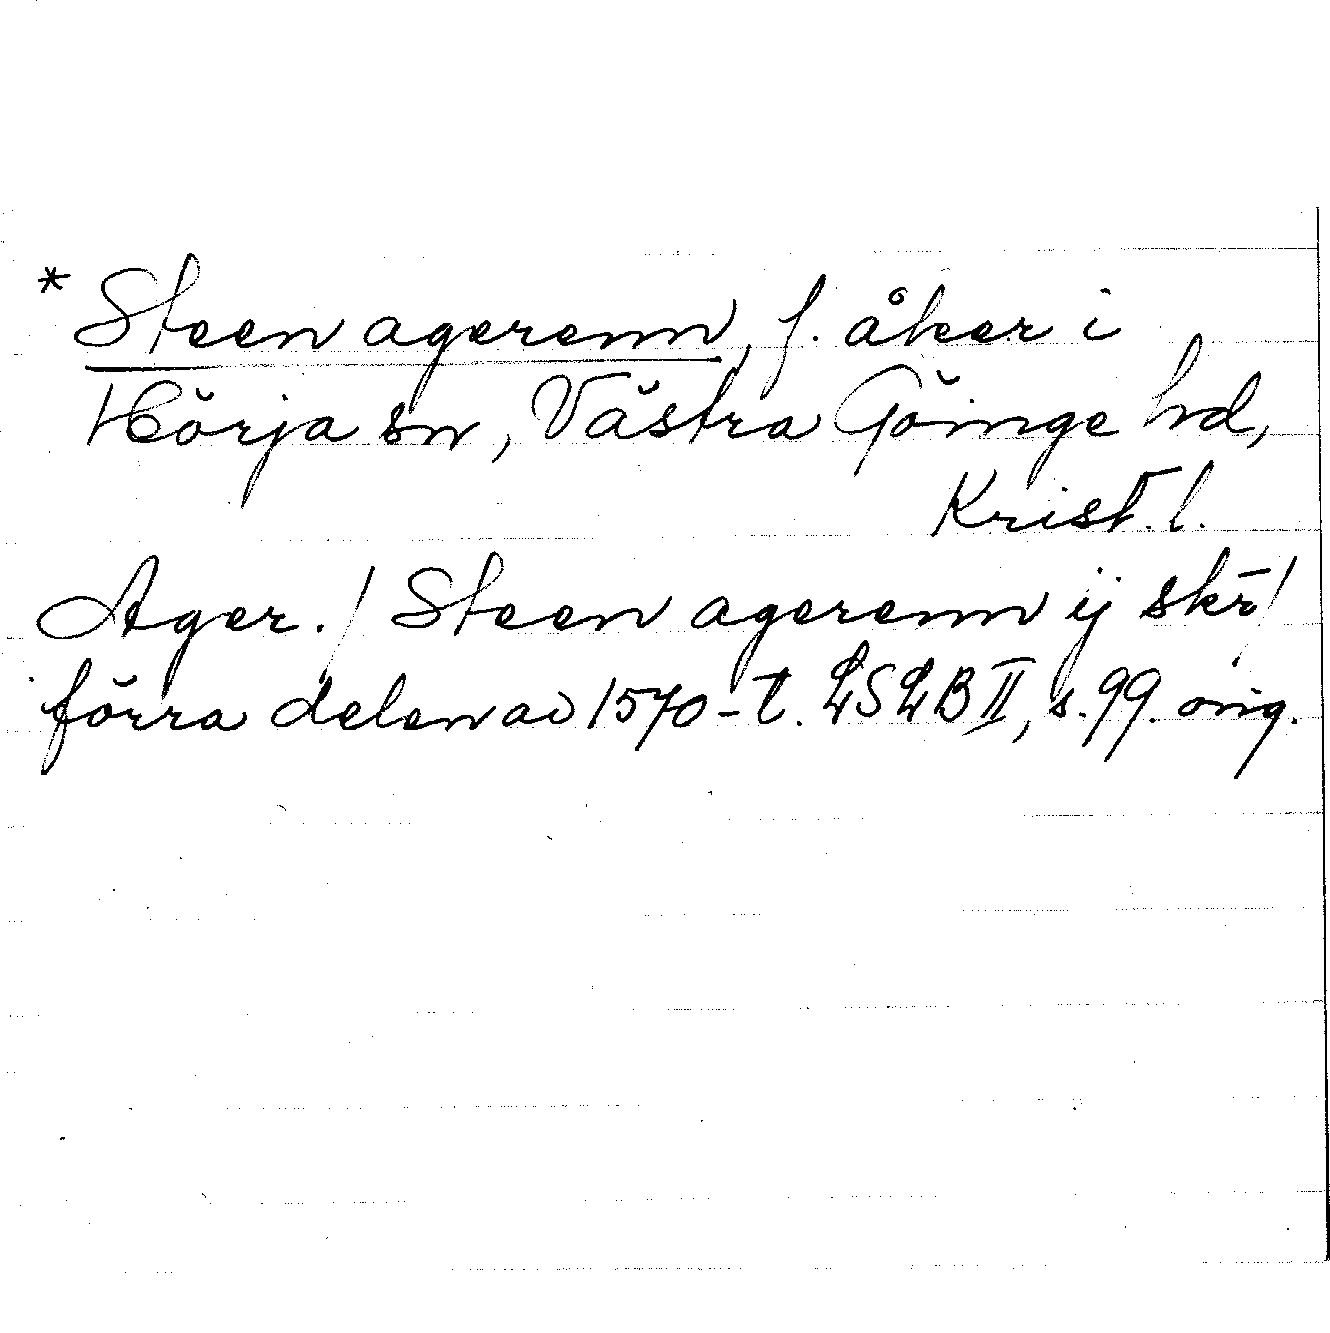 * Steen agerenn, f. åker i
Hörja sn, Västra Göinge hd,
Krist. l.
Ager. / Steen agerenn ij skr̄ /
förra delen av 1570-t. LSLB II, s. 99. orig.